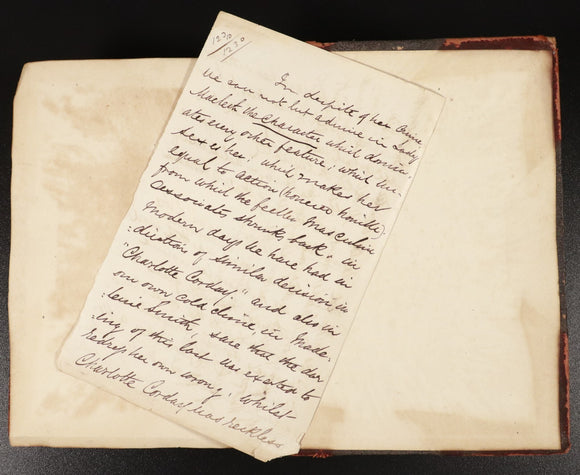 1230
1230
In despite of her crime
We can not but admire in Lady
Macbeth the Character which domin
ates every other feature, which un
sexes her; which makes her
equal to action (however horrible)
from which the feebler masculine
Associates shrunk back. in
Modern days we have had in
-dication of similar decision in
"Charlotte Corday." and also in
our own cold clime, in Made-
-leine Smith, save that the dar
-ing of this last was exerted to
redress her own wrong; whilst
Charlotte Corday was reckless